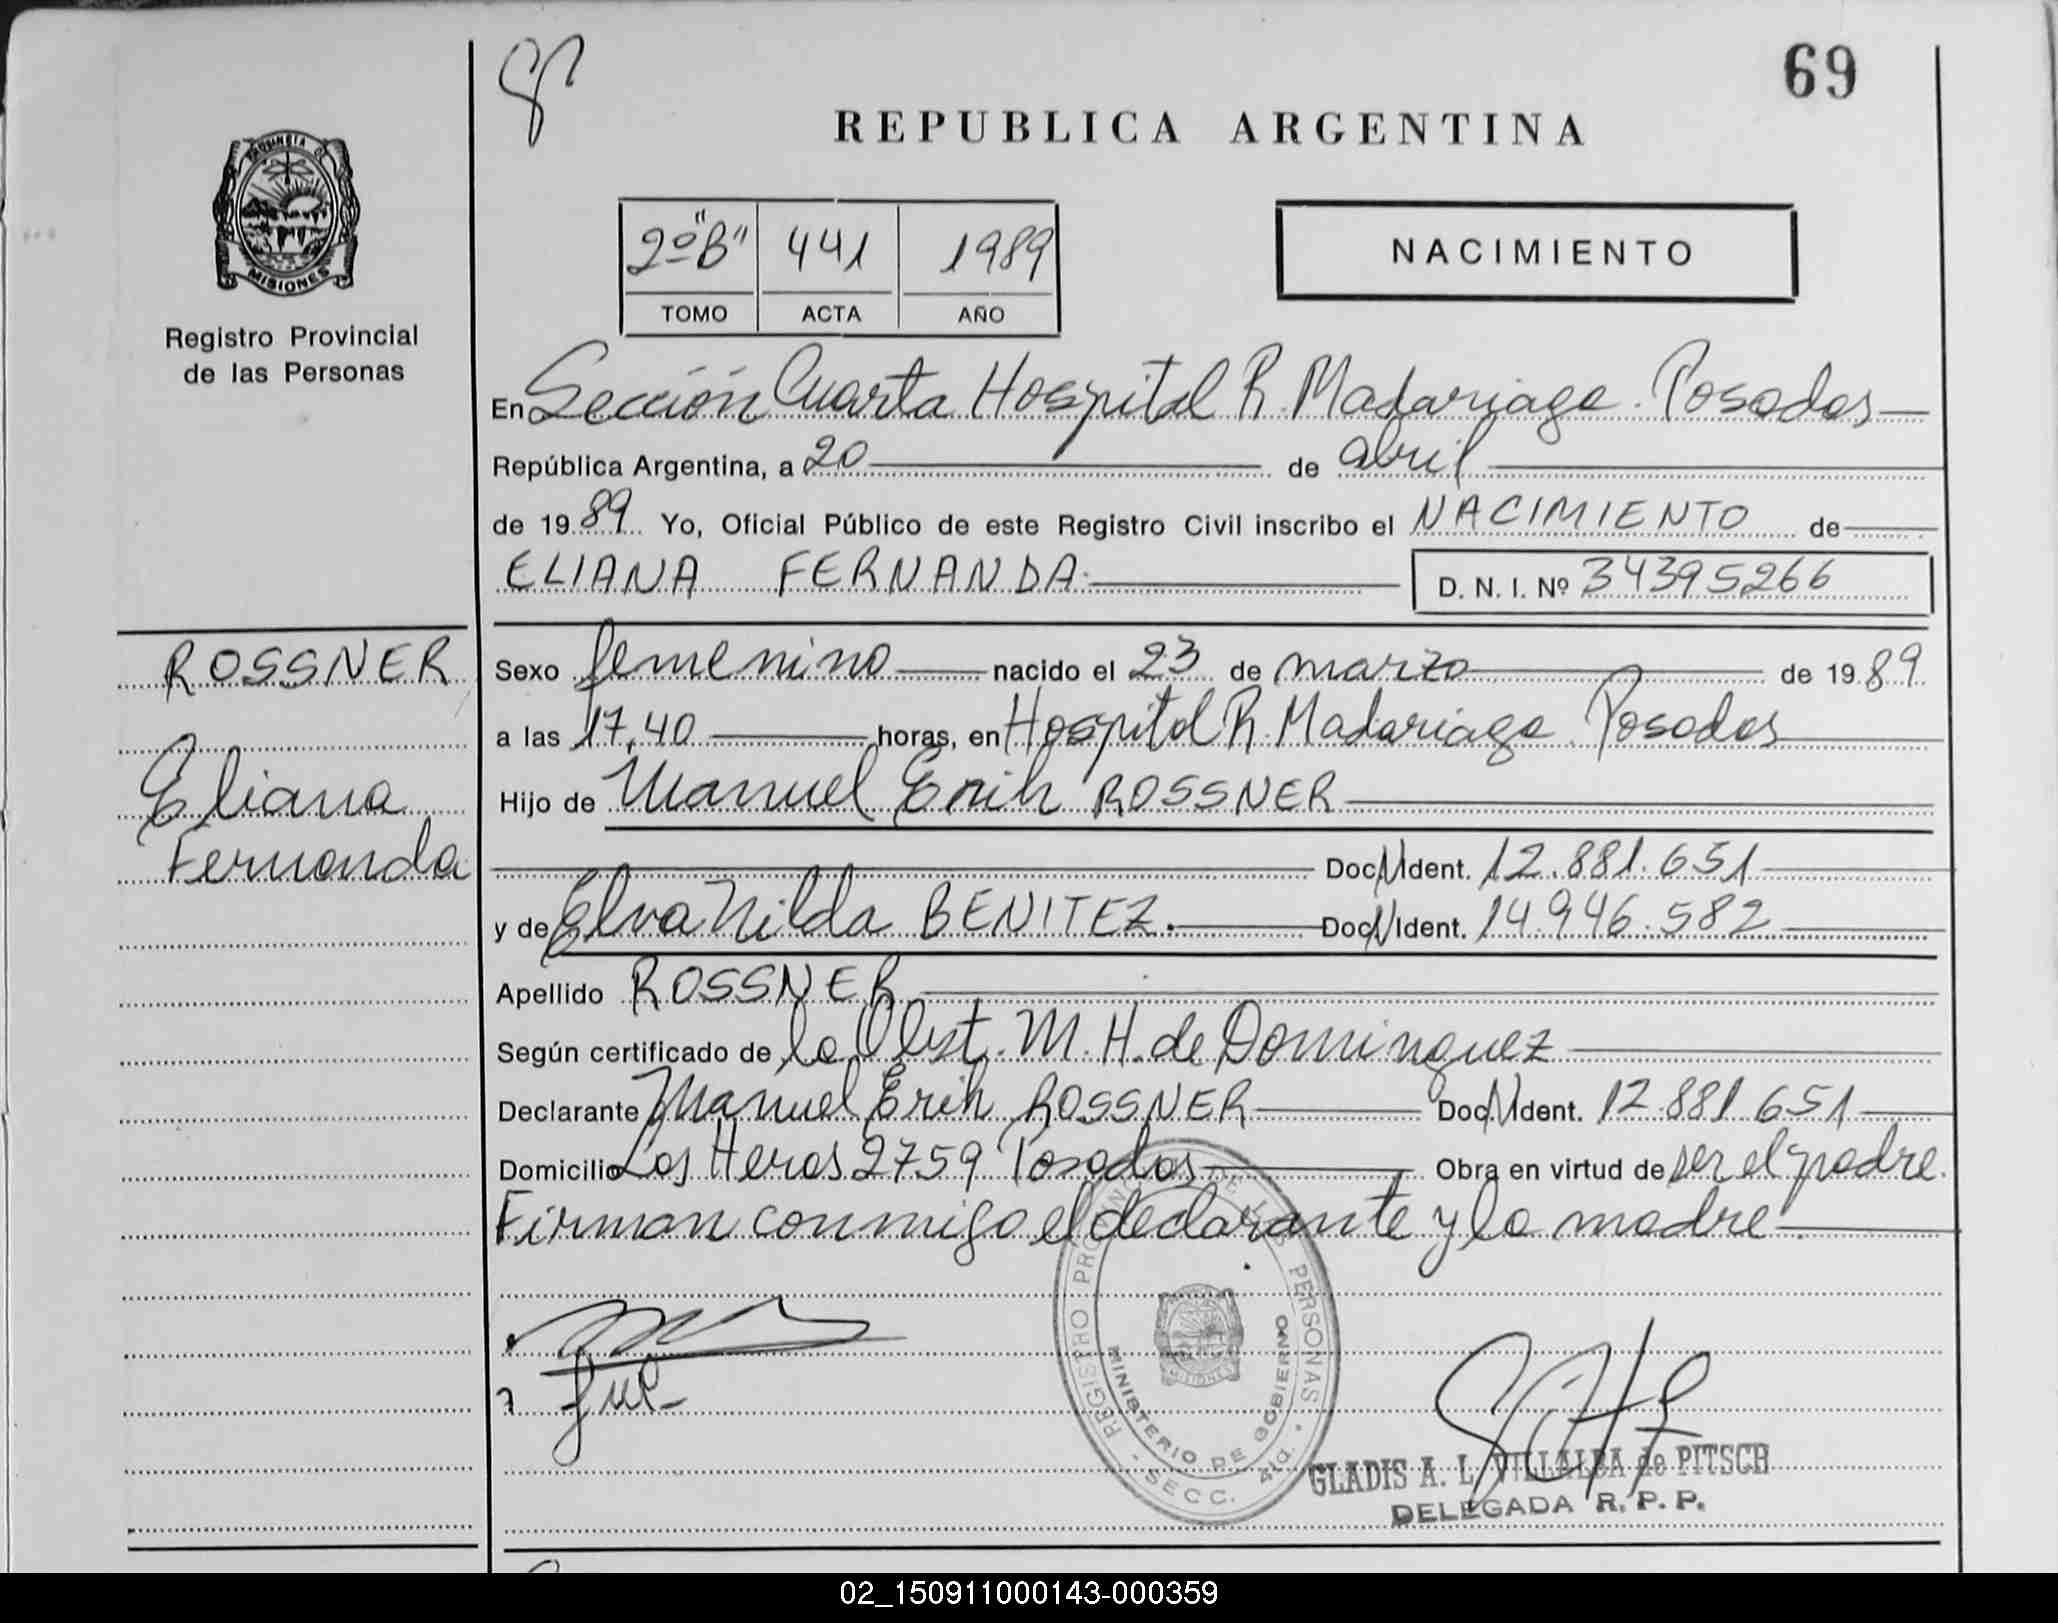 69
REPUBLICA ARGENTINA
PROVINCIA DE
MISIONES
Registro Provincial
de las Personas
2º "B" 441 1989
TOMO ACTA AÑO
NACIMIENTO
En Sección Cuarta Hospital R. Madariaga. Posadas
República Argentina, a 20 de abril
de 1989 Yo, Oficial Público de este Registro Civil inscribo el NACIMIENTO de
ELIANA FERNANDA. D. N. I. Nº 34395266
ROSSNER
Eliana
Fernanda
Sexo femenino nacido el 23 de marzo de 1989
a las 17,40 horas, en Hospital R. Madariaga. Posadas
Hijo de Manuel Erih ROSSNER
Doc. N. Ident. 12.881.651
y de Elva Nilda BENITEZ. Doc. N. Ident. 14.946.582
Apellido ROSSNER
Según certificado de la Obst. M. H. de Dominguez
Declarante Manuel Erih ROSSNER Doc. N. Ident. 12.881.651
Domicilio Las Heras 2759 Posadas Obra en virtud de ser el padre.
Firman conmigo el declarante y la madre.
REGISTRO PROVINCIAL DE LAS PERSONAS
MINISTERIO DE GOBIERNO
SECC. 4ta.
GLADIS A. L. VILLALBA de PITSCH
DELEGADA R. P. P.
02_150911000143-000359